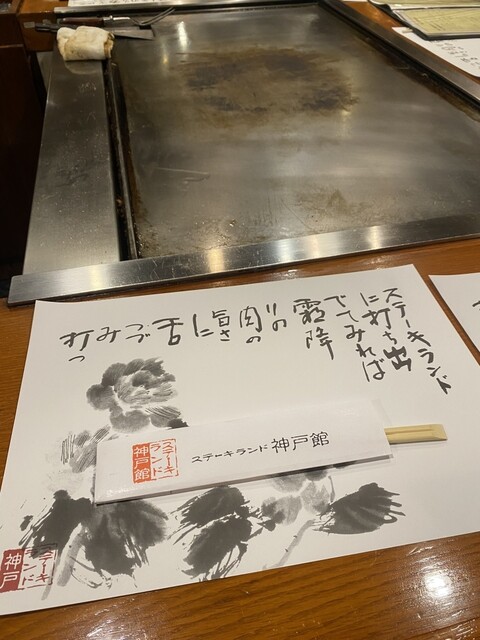 ステーキランド
に打ち出
でてみれば
霜降
りの
肉の
旨さ
に
舌
つづ
み
打
っ
ステーキ
ランド
神戸館
ステーキランド 神戸館
ステーキ
ランド
神戸